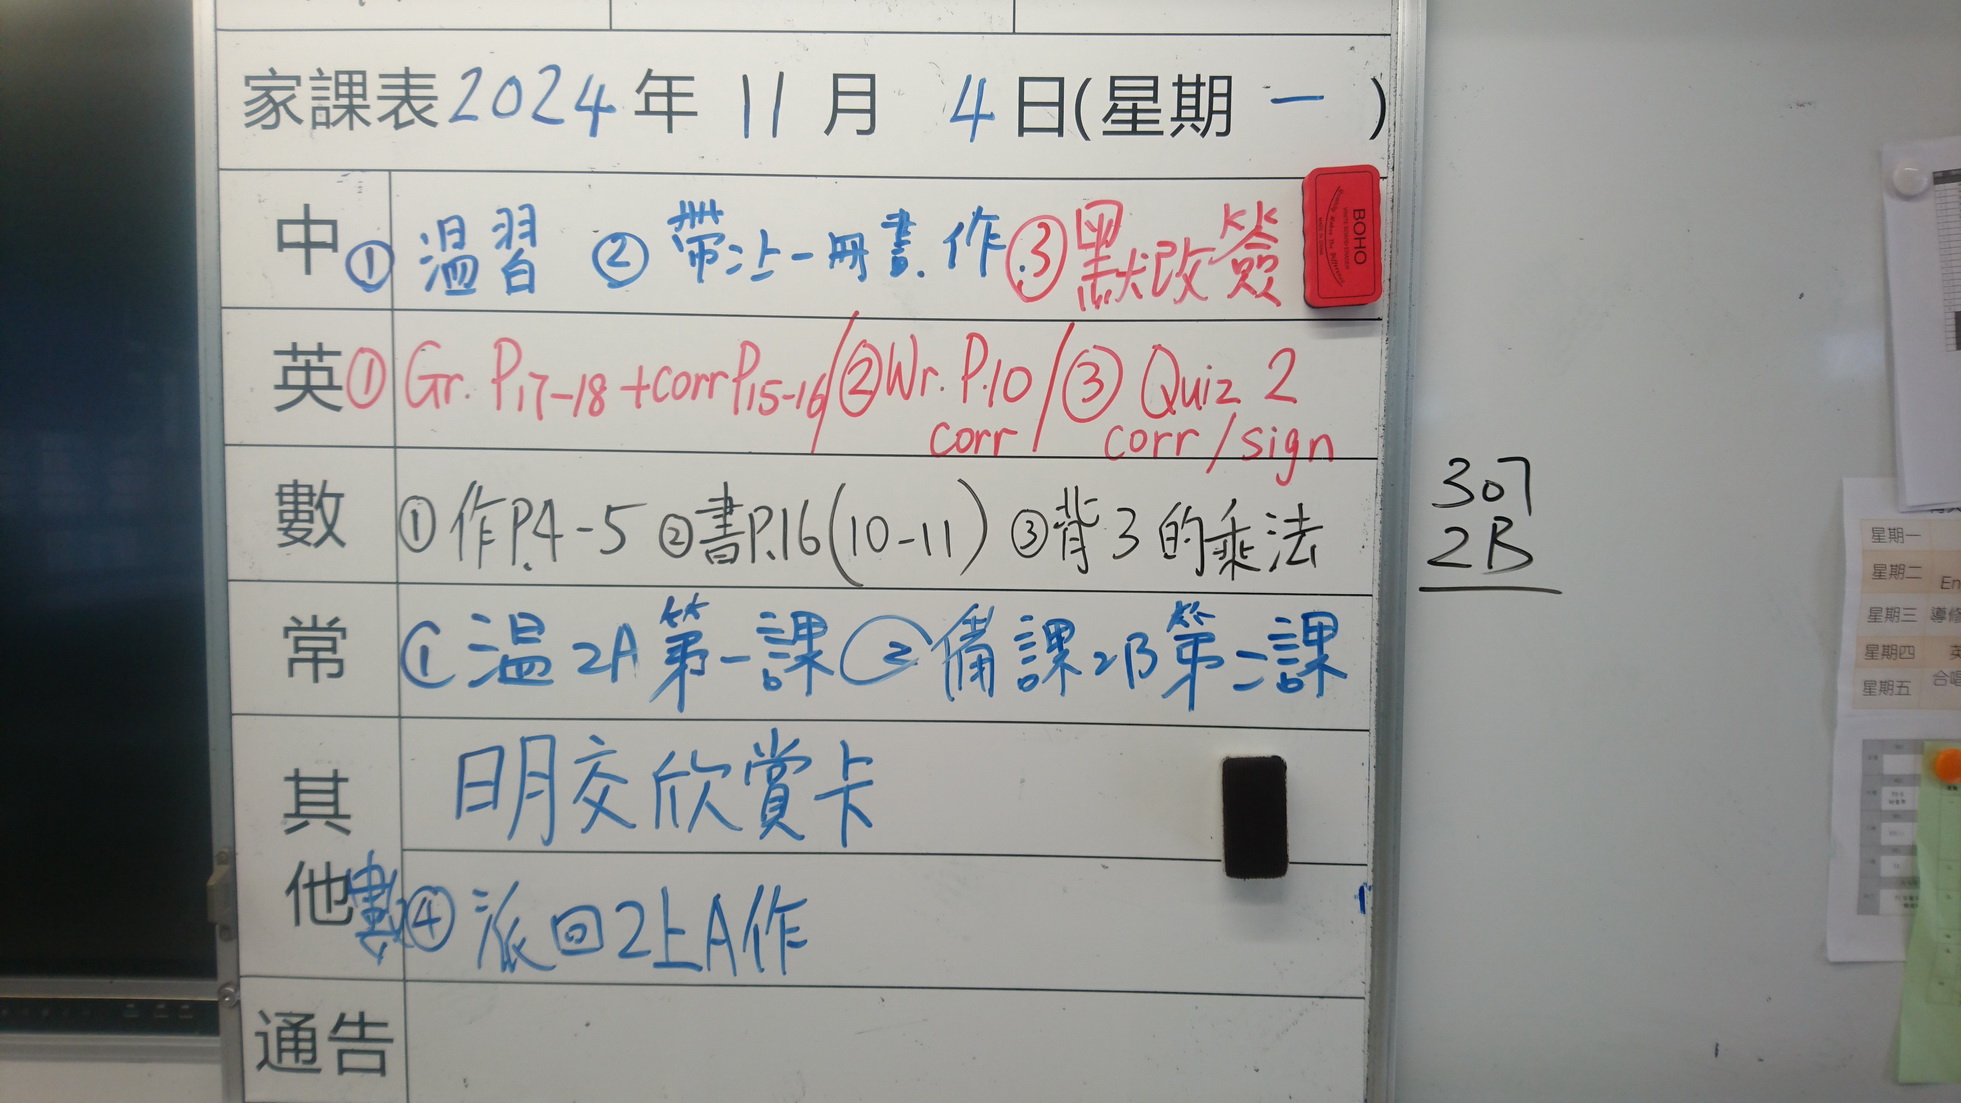 家課表2024年 11月 4日(星期 一 )
中① 溫習 ② 帶2上一冊書.作③默改簽
英①Gr. P17-18 +corrP15-16/②Wr. P.10/③ Quiz 2
corr corr/sign
數①作P.4-5 ②書P.16(10-11) ③背3的乘法
常①溫2A第一課②備課2B第二課
其他
日月交欣賞卡
數④派回2上A作
通告
BOHO
307
2B
星期一
星期二 En
星期三 導修
星期四 英
星期五 合唱